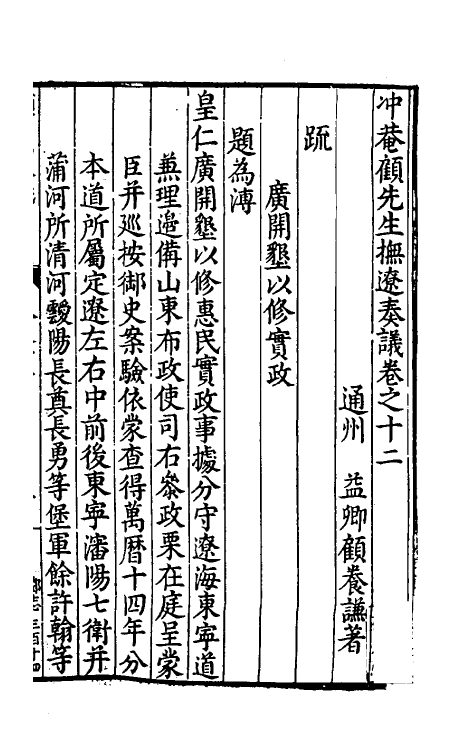 冲菴顧先生撫遼奏議卷之十二
通州　益卿顧養謙著
疏
廣開墾以修實政
題為溥
皇仁廣開墾以修惠民實政事據分守遼海東寧道
兼理邊備山東布政使司右叅政栗在庭呈蒙
臣幷廵按御史案驗依蒙查得萬曆十四年分
本道所屬定遼左右中前後東寧瀋陽七衛幷
蒲河所清河靉陽長奠長勇等堡軍餘許翰等